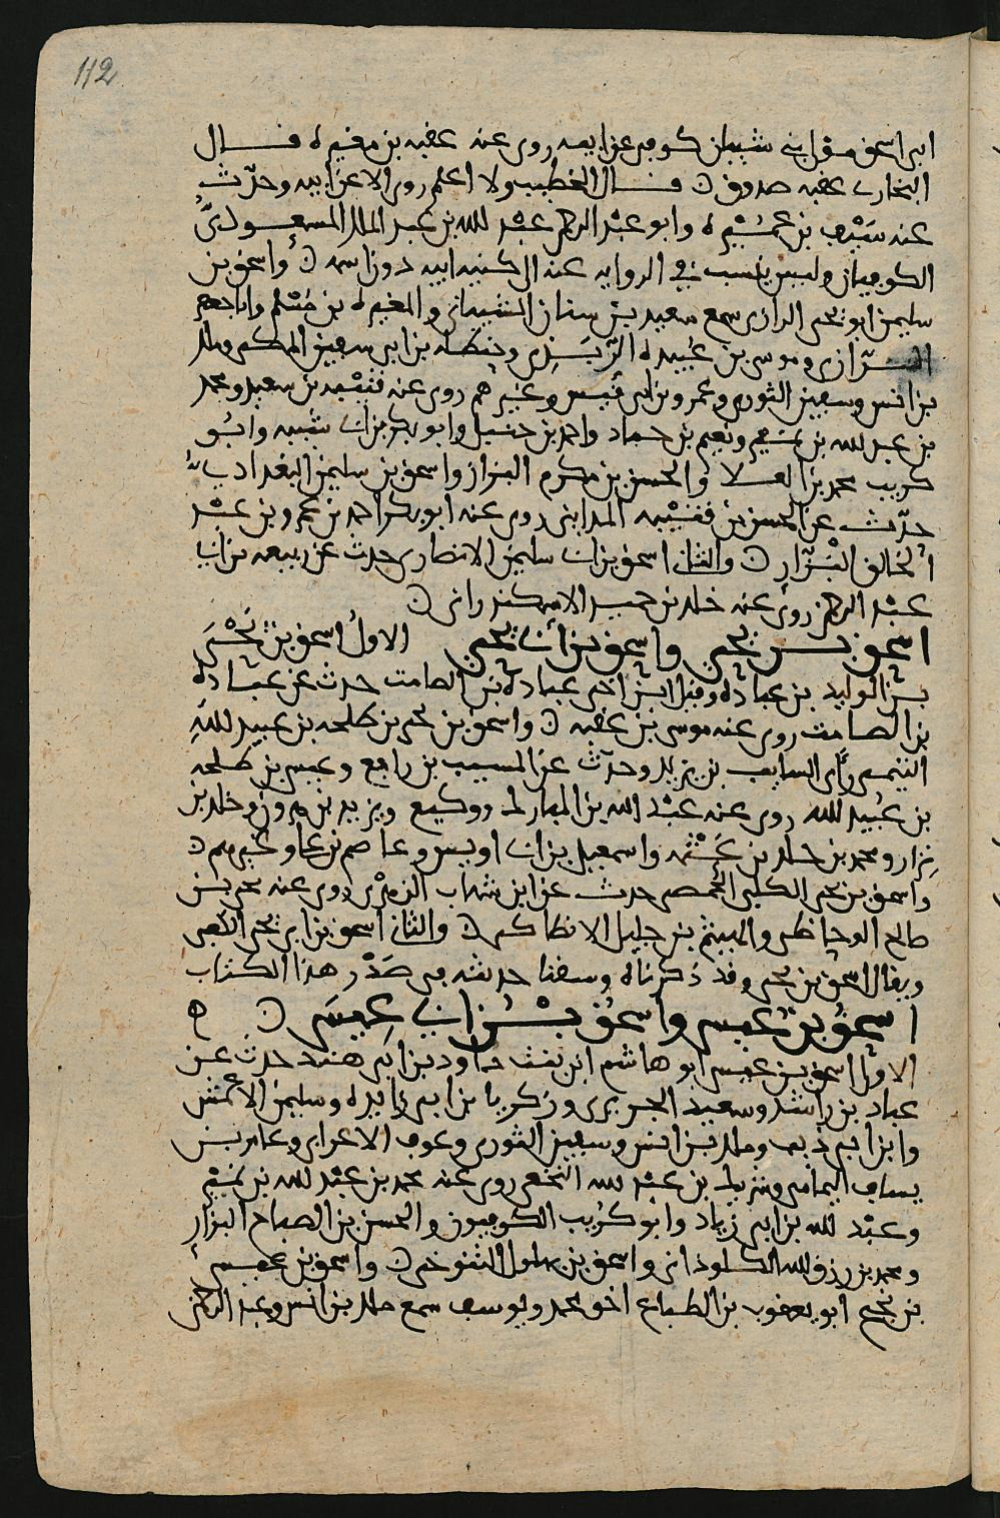 112
ابى اسحق مولى بنى شيبان كوفى عن ابيه روى عنه عقبه بن مغيره قــال
البخارى عقبه صدوق ن قــال الخطيب ولا اعلم روى الا عن ابيه وحدّث
عنه سَيْف بن عَميْره وابو عبْد الرحمن عبْد الله بن عبد الملك المسعـودىّ
الكوفيان وليس ينسب فى الروايه عنه الى كنيه ابيه دون اسمه ن واسحق بن
سليمن ابو يحيى الرازى سمع سعيد بن سنان الشيبانى والمغيره بن مُسْلم وابا جعفر
الـرّازى وموسى بن عُبيده الرّبَـذِى وحنظله بن ابى سفين المكى وملك
بن انس وسفين الثورى وعمرو بن ابى قيس وغيْرهم روى عنه قتيْبه بن سعيد ومحمد
بن عبد الله بن نمير ونعيم بن حماد واحمد بن حنبل وابو بكر بن ابى شيبه وابـو
كريب محمد بن العـلا والحسن بن مكرم البزاز واسحق بن سليمن البغدادىّ
حدّث عن الحسن بن قتيْبه المداينى روى عنه ابو بكر احمد بن عمرو بن عبْد
الخالق البْزّار ن والثانى اسحق بن ابى سليمن الانصارى حدث عن ربيعه بن ابى
عبْد الرحمن روى عنه خلد بن حميد الاسكندرانى ن
اسحق بـن يحيى واسحق بن ابى يحيى الاولُ اسحق بن يَحْيَى
بن الوليد بن عبادة وقيل ابن اخى عبادة بن الصامت حدث عن عبـادة
بن الصامت روى عنه موسى بن عقبه ن واسحق بن يحيى بن طلحه بن عبيد اللهِ
التيمى رأى السايب بن يزيد وحدّث عن المسيب بن رافع وعيسى بن طلحه
بن عُبيد الله روى عنه عبْد الله بن المبارك ووكيع ويزيد بن هرون وخلد بن
نِزار ومحمد بن خلد بن عَثْمه واسمعيل بن ابى اويس وعاصم بن على وغيرهم ن
واسحق بن يحيى الكلبى الحمصى حدث عن ابن شهاب الزهْرى روى عنه يحيى بن
صالح الوحاظى والهيثم بن جميل الانطاكى ن والثانى اسحق بن ابى يحيى الكعبى
ويقال اسحق بن يحيى وقد ذكرناه وسقنا حديثه فى صَدْر هذا الكتاب
اسحقُ بن عيسى واسحقُ بْـن ابى عيسَى ن ه
الاول اسحق بـن عيسى ابو هاشم ابن بنت داود بن ابى هنْد حدث عـن
عباد بن راشد وسعيد الجريرى وزكريا بن ابى زايده وسليمن الاعْمش
وابن ابى ذيب وملك بن انس وسفين الثورى وعوف الاعرابى وعامر بـن
يساف اليمامى وشريك بن عبْد الله النخعى روى عنه محمد بن عبْد الله بن نميْر
وعبْد الله بن ابى زياد وابو كُريب الكوفيون والحسن بن الصباح البزار
ومحمد بن رزق الله الكلوذانى واسحق بن بهلول التنوخى ن واسحق بن عيسى
بن نجيح ابو يعقوب بن الطباع اخو محمد ويوسف سمع ملك بن انس وعبد الرحمن